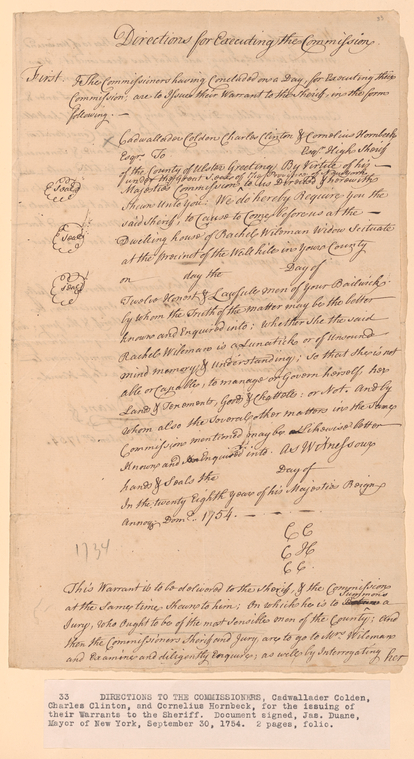 33
Directions for Executing the Commission
First. The Commissioners having Concluded on a Day, for Executing their
Commission; are to Issue their Warrant to the Sheriff, in the form
following. -
Cadwallader Colden Charles Clinton & Cornelius Hornbeck
Esqrs. To Esqr. High Sheriff
of the County of Ulster Greeting By Virtue of his
under the Great Seale of the Province of New York
Majesties Commission to us Directed & herewith
Shewn unto you: We do hereby Require you the
said Sheriff, to Cause to Come before us at the
Dwelling house of Rachel Wileman Widow Scituate
at the Precinct of the Wall kile in your County
on day the Day of
Twelve Honest & Lawfull men of your Bailwick
by whom the Truth of the matter may be the better
known and Enquired into: whether She the said
Rachel Wileman is a Lunatick or of unsound
mind memory & understanding; So that she is not
able or Capable, to manage or Govern herself her
Land & Tenements, Goods & Chattels: or Not. And by
Whom also the Several other matters in the Same
Commission mentioned may be Likewise better
Known and Enquired into. As Witness our
hands & Seals the Day of
In the twenty Eighth Year of his Majesties Reign
Annoq Dom. 1754. -
Seal
Seal
Seal
CC
CH
CC
1754
This Warrant is to be delivered to the Sheriff, & the Commission
at the Same time Shewn to him: On which he is to Summons a
Jury, who Ought to be of the most Sensible men of the County: And
then the Commissioners Sheriff and Jury, are to go to Mrs Wileman
and Examine and diligently Enquire; as well by Interrogating her
33 DIRECTIONS TO THE COMMISSIONERS, Cadwallader Colden,
Charles Clinton, and Cornelius Hornbeck, for the issuing of
their Warrants to the Sheriff. Document signed, Jas. Duane,
Mayor of New York, September 30, 1754. 2 pages, folio.